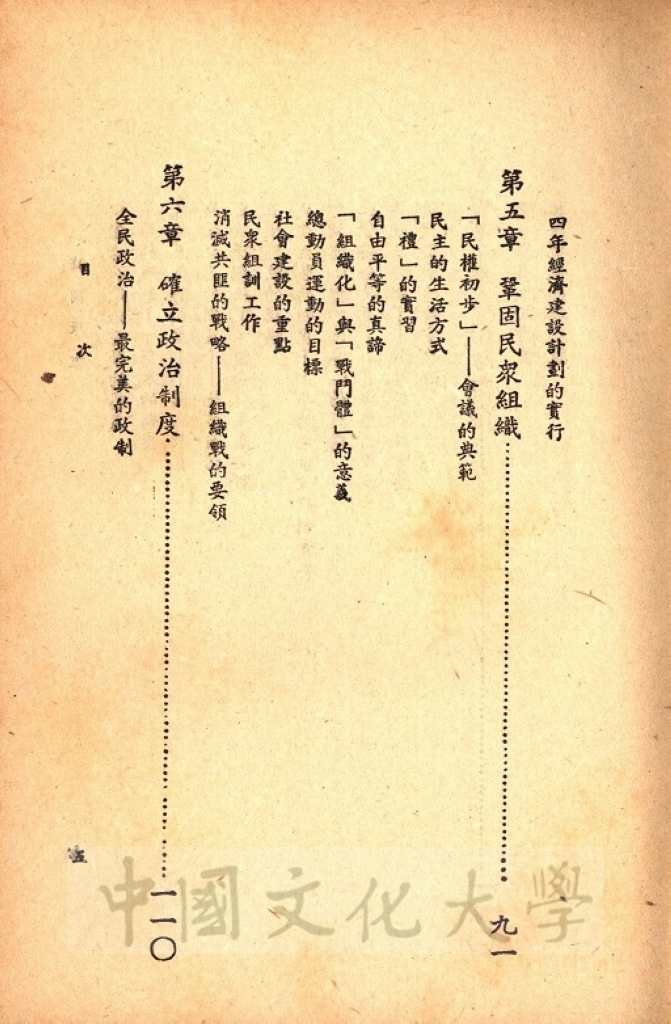 四年經濟建設計劃的實行
第五章　鞏固民眾組織……………………九一
「民權初步」——會議的典範
民主的生活方式
「禮」的實習
自由平等的真諦
「組織化」與「戰鬥體」的意義
總動員運動的目標
社會建設的重點
民眾組訓工作
消滅共匪的戰略——組織戰的要領
第六章　確立政治制度……………………一一〇
全民政治——最完美的政制
目　次
五
中國文化大學